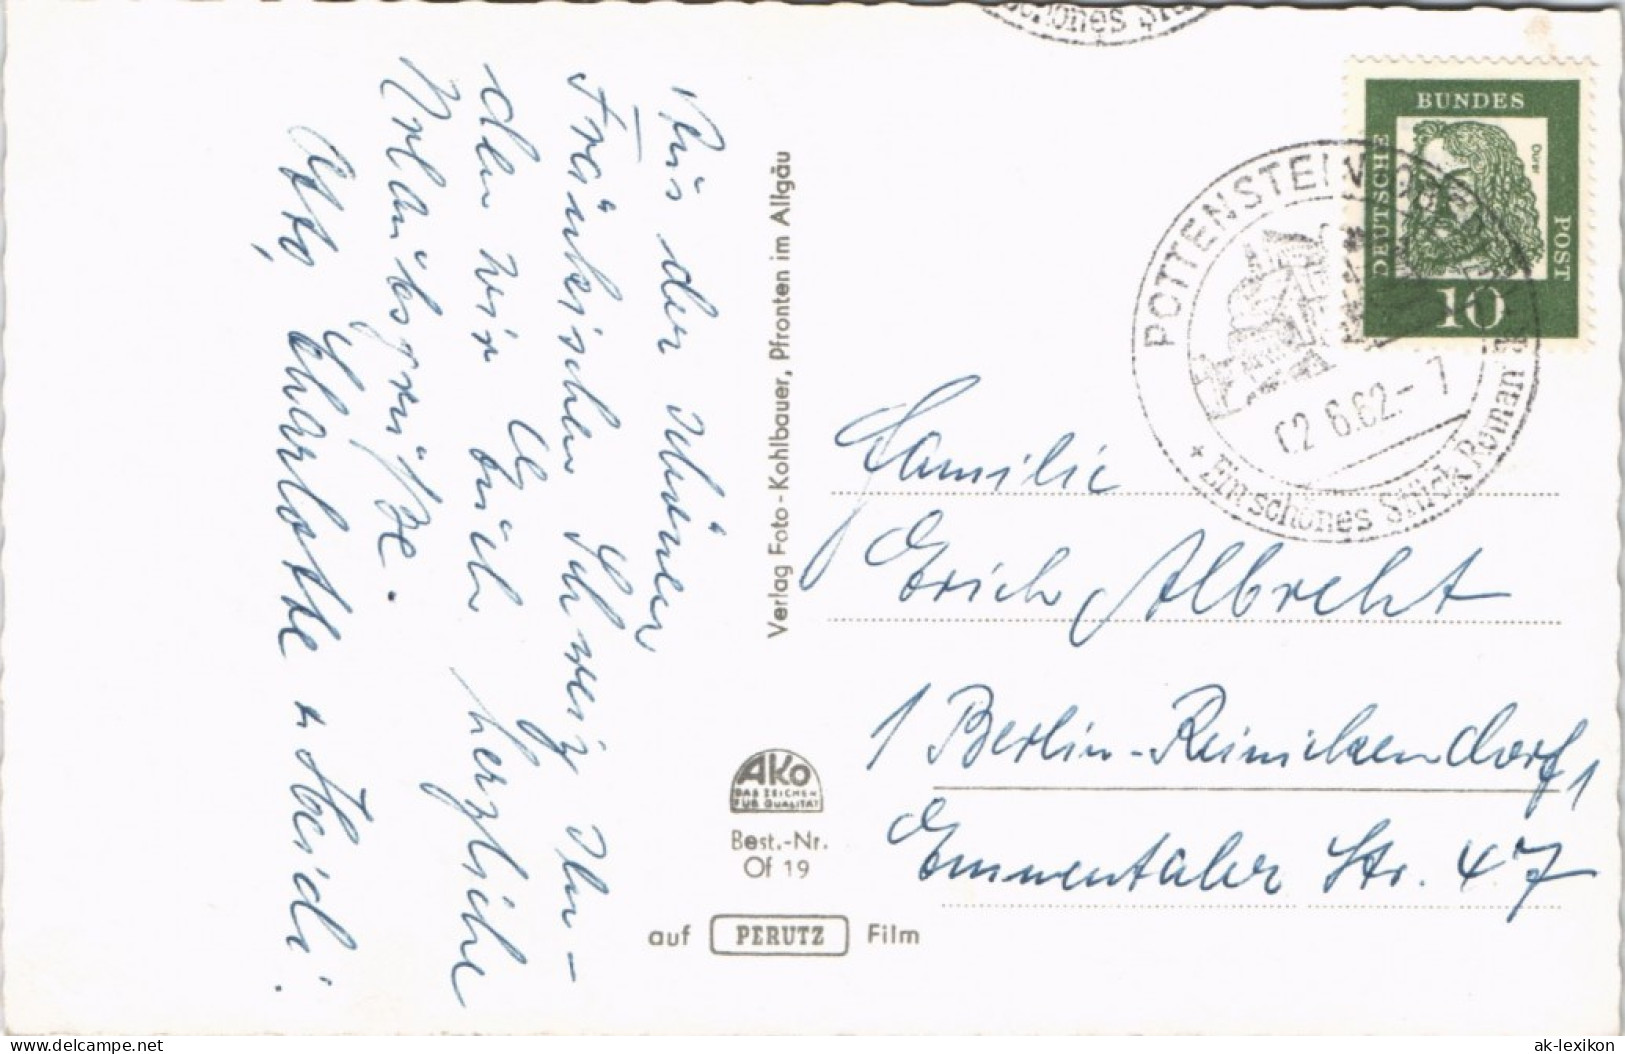 Aus der schönen
Fränkischen Schweiz sen-
den wir Euch herzliche
Urlaubsgrüße.
Otto, Charlotte u. Heidi.
Verlag Foto-Kohlbauer, Pfronten im Allgäu
AKO
DAS ZEICHEN
FÜR QUALITÄT
Best.-Nr.
Of 19
auf PERUTZ Film
schönes Stück
DEUTSCHE BUNDES POST
Dürer
10
POTTENSTEIN
02.6.62.-7
* Ein schönes Stück Roman
Familie
Erich Albrecht
1 Berlin-Reinickendorf 1
Emmentaler Str. 47
delcampe.net
ak-lexikon